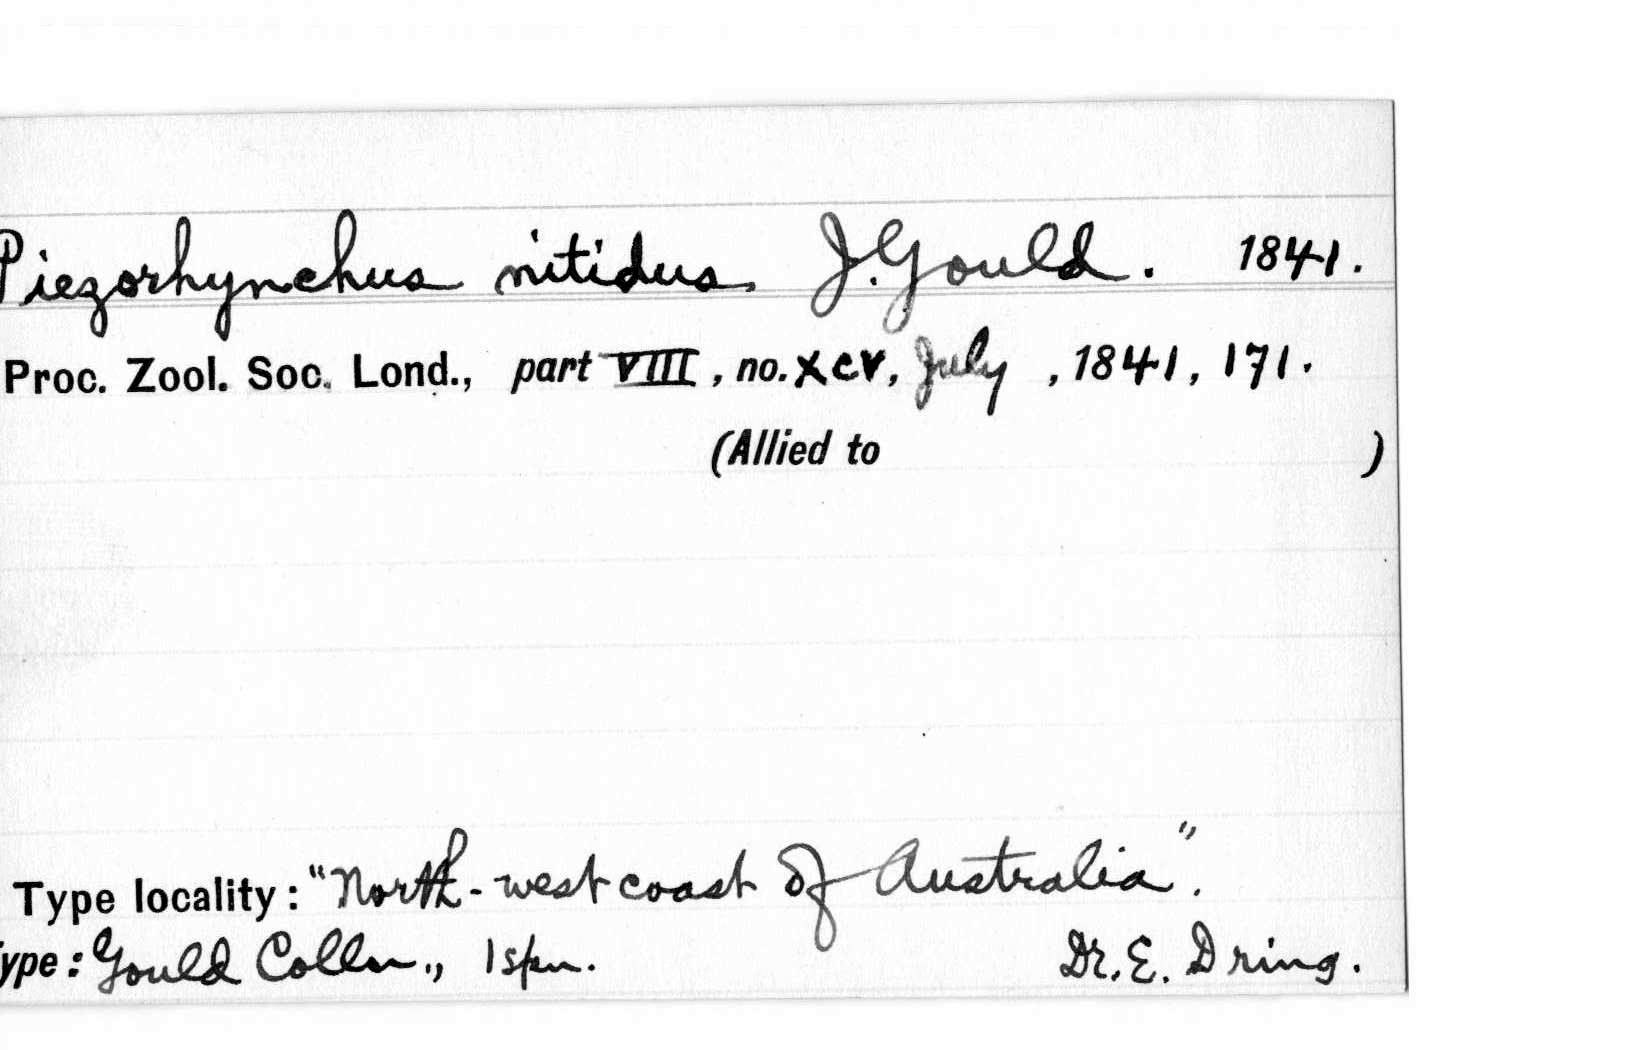 Piezorhynchus nitidus J. Gould. 1841.
Proc. Zool. Soc. Lond., part VIII, no. XCV, July, 1841, 171.
(Allied to )
Type locality: "North-west coast of Australia".
ype: Gould Colln., 1 spn. Dr. E. Dring.